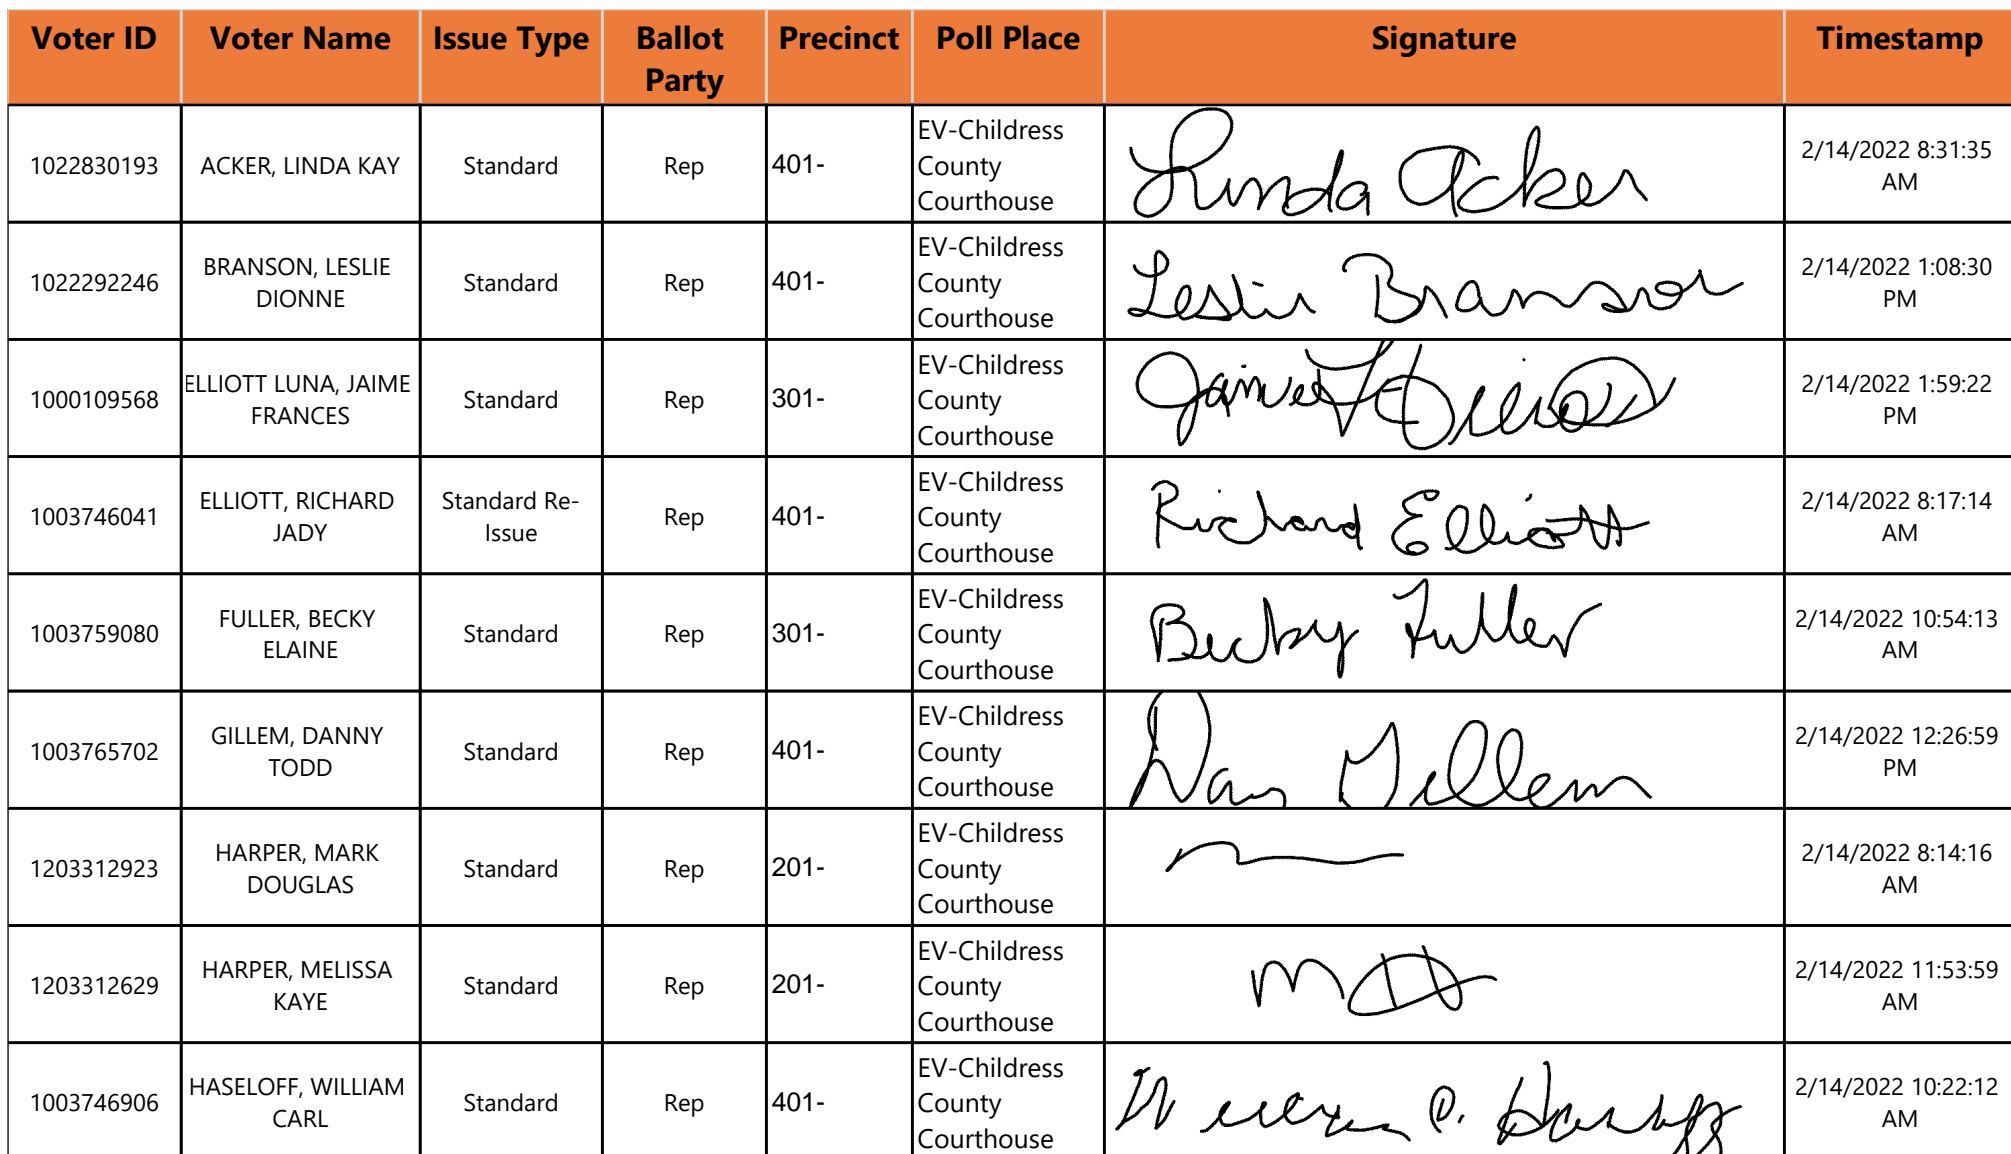 Voter ID Voter Name Issue Type Ballot Party Precinct Poll Place Signature Timestamp
1022830193 ACKER, LINDA KAY Standard Rep 401- EV-Childress County Courthouse Linda Acker 2/14/2022 8:31:35 AM
1022292246 BRANSON, LESLIE DIONNE Standard Rep 401- EV-Childress County Courthouse Leslie Branson 2/14/2022 1:08:30 PM
1000109568 ELLIOTT LUNA, JAIME FRANCES Standard Rep 301- EV-Childress County Courthouse Jaime 2/14/2022 1:59:22 PM
1003746041 ELLIOTT, RICHARD JADY Standard Re-Issue Rep 401- EV-Childress County Courthouse Richard Elliott 2/14/2022 8:17:14 AM
1003759080 FULLER, BECKY ELAINE Standard Rep 301- EV-Childress County Courthouse Becky Fuller 2/14/2022 10:54:13 AM
1003765702 GILLEM, DANNY TODD Standard Rep 401- EV-Childress County Courthouse Dan Gillem 2/14/2022 12:26:59 PM
1203312923 HARPER, MARK DOUGLAS Standard Rep 201- EV-Childress County Courthouse 2/14/2022 8:14:16 AM
1203312629 HARPER, MELISSA KAYE Standard Rep 201- EV-Childress County Courthouse 2/14/2022 11:53:59 AM
1003746906 HASELOFF, WILLIAM CARL Standard Rep 401- EV-Childress County Courthouse 2/14/2022 10:22:12 AM